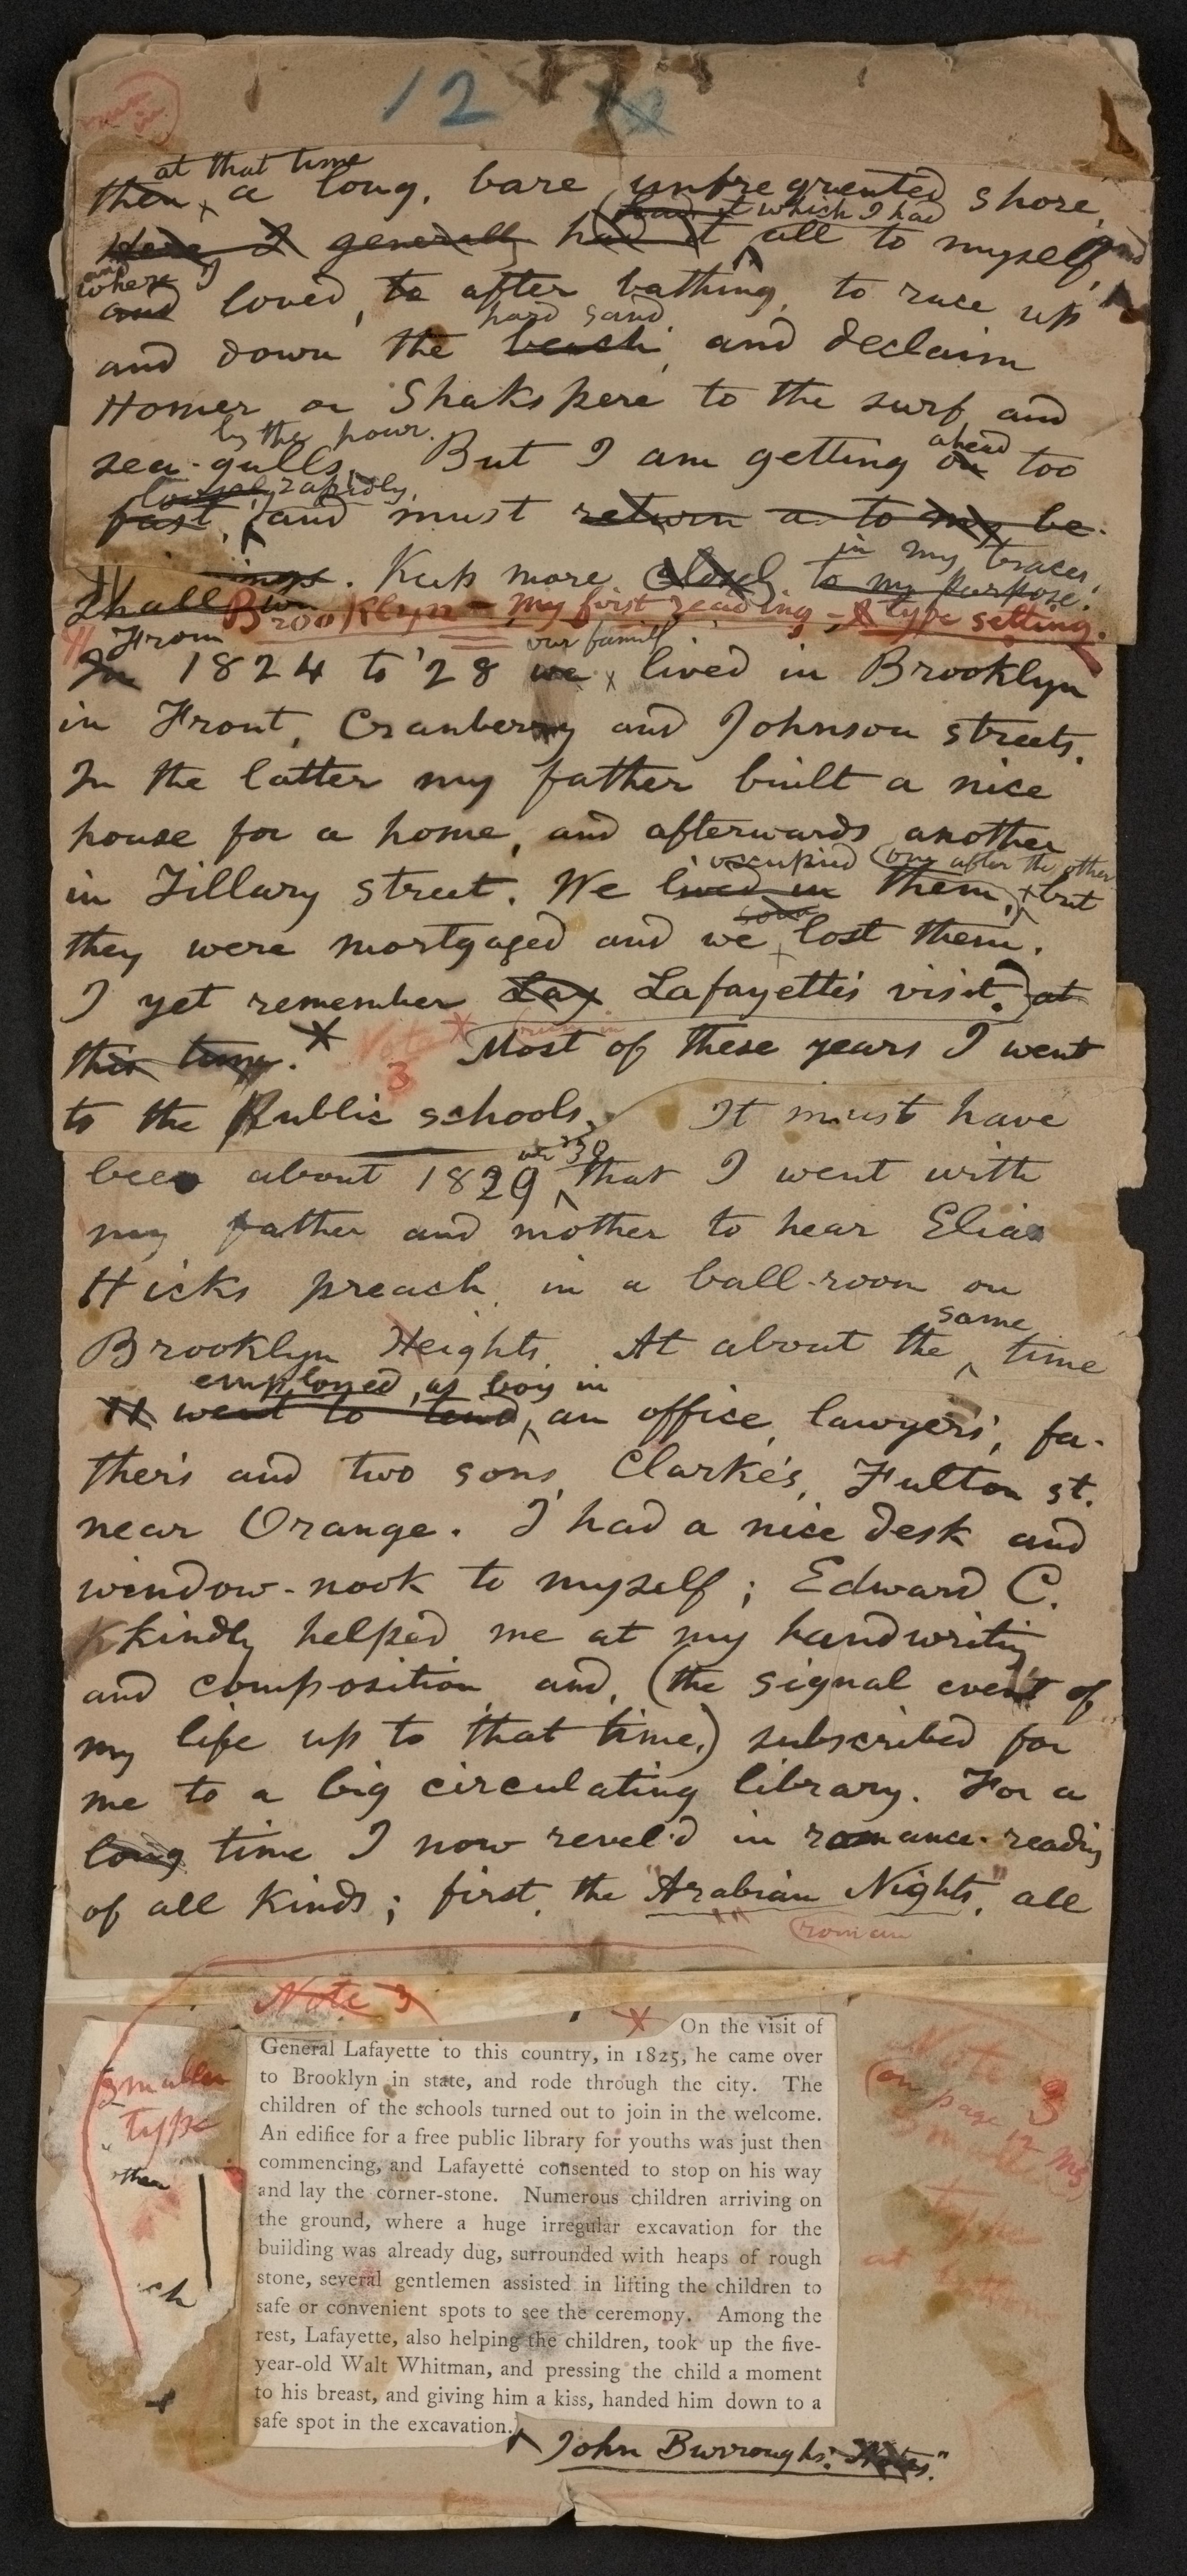 12
at that time
then a long, bare unfrequented shore,
had it which I had
Here I generally had it all to myself, and
and where I
and loved, to after bathing, to race up
hard sand
and down the beach, and declaim
Homer or Shakspere to the surf and
by the hour.
sea-gulls. But I am getting on too
ahead
loosely rapidly,
fast, and must return a to my be-
in my traces.
ings. Keep more closely to my purpose.
Shall
Brooklyn – my first reading – & type setting.
From our family
In 1824 to '28 we lived in Brooklyn
in Front, Cranberry and Johnson streets.
In the latter my father built a nice
house for a home, and afterwards another
occupied (one after the other
in Tillary street. We lived in them,) but
soon
they were mortgaged and we lost them.
I yet remember Lay Lafayette's visit. at
this time. * Note * Most of these years I went
3
to the Public schools. It must have
or '30
been about 1829 that I went with
my father and mother to hear Elias
Hicks preach in a ball-room on
same
Brooklyn Heights. At about the time
employed as boy in
I went to tend an office, lawyers', fa-
ther's and two sons, Clarke's, Fulton st.
near Orange. I had a nice desk and
window-nook to myself; Edward C.
kindly helped me at my handwriting
and composition, and, (the signal event of
my life up to that time,) subscribed for
me to a big circulating library. For a
long time I now revel'd in romance-reading
of all kinds; first, the "Arabian Nights," all
roman
Note 3
* On the visit of
General Lafayette to this country, in 1825, he came over
to Brooklyn in state, and rode through the city. The
children of the schools turned out to join in the welcome.
An edifice for a free public library for youths was just then
commencing, and Lafayette consented to stop on his way
and lay the corner-stone. Numerous children arriving on
the ground, where a huge irregular excavation for the
building was already dug, surrounded with heaps of rough
stone, several gentlemen assisted in lifting the children to
safe or convenient spots to see the ceremony. Among the
rest, Lafayette, also helping the children, took up the five-
year-old Walt Whitman, and pressing the child a moment
to his breast, and giving him a kiss, handed him down to a
safe spot in the excavation.
John Burroughs. Notes."
smaller
type
Note 3
(on page 12 ms)
type
at